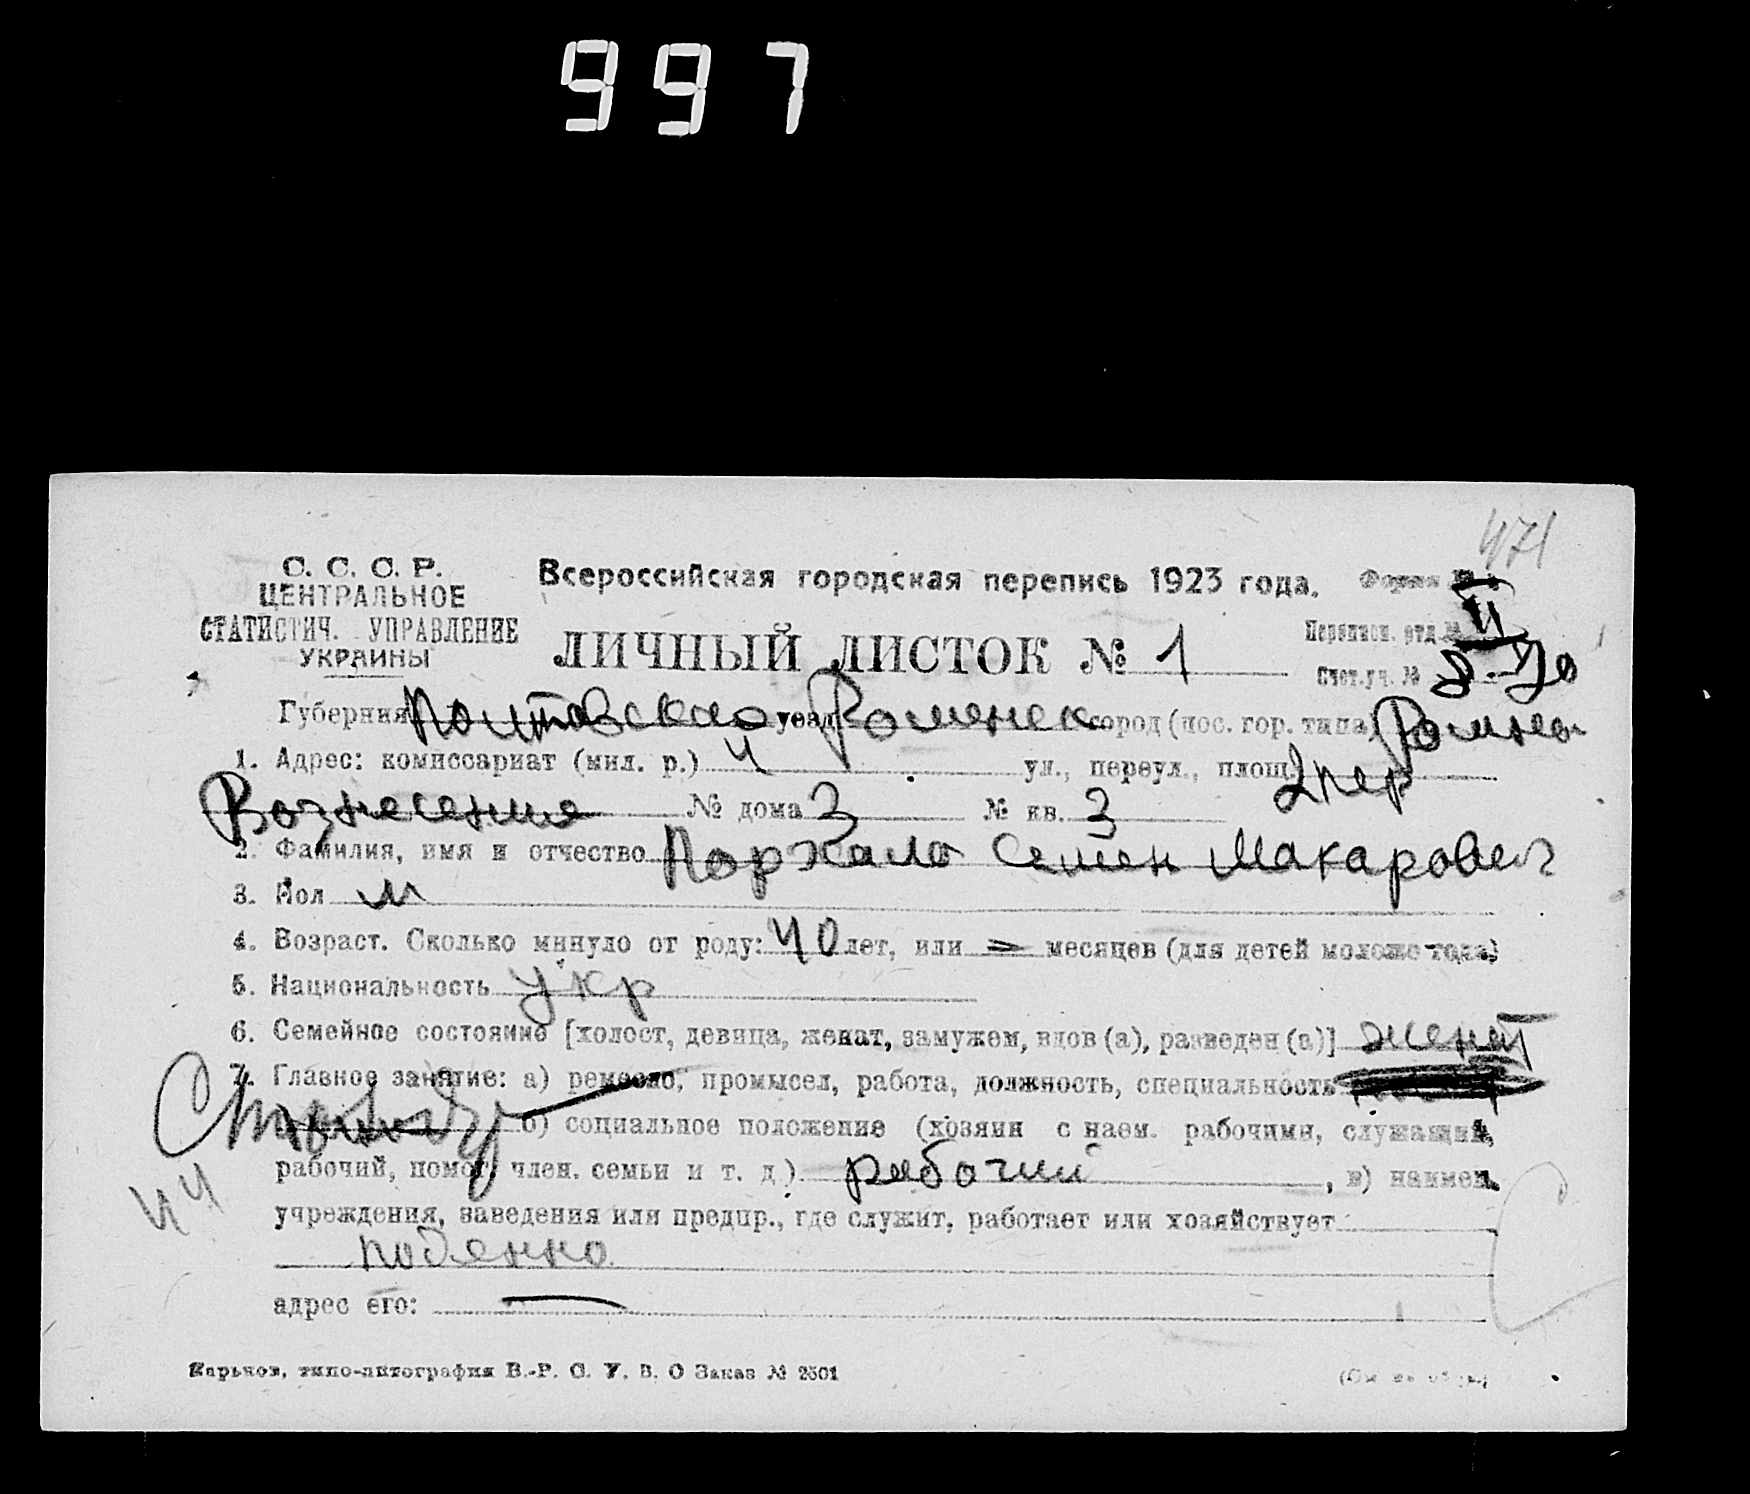 997
471
С. С. С. Р.
ЦЕНТРАЛЬНОЕ
СТАТИСТИЧ. УПРАВЛЕНИЕ
УКРАИНЫ
Всероссийская городская перепись 1923 года. Форма №
ЛИЧНЫЙ ЛИСТОК № 1
Переписн. отд. №
Счет. уч. №
Губерния Полтавская уезд Роменск город (пос. гор. типа) Ромны
1. Адрес: комиссариат (мил. р.) 4 ул., переул., площ. 2 пер
Вознесение № дома 3 № кв. 3
2. Фамилия, имя и отчество Поржало Семен Макарович
3. Пол м
4. Возраст. Сколько минуло от роду: 40 лет, или = месяцев (для детей моложе года)
5. Национальность укр
6. Семейное состояние [холост, девица, женат, замужем, вдов (а), разведен (а)] женат
7. Главное занятие: а) ремесло, промысел, работа, должность, специальность
б) социальное положение (хозяин с наем. рабочими, служащий,
рабочий, помог. член. семьи и т. д.) рабочий, в) наимен.
44
учреждения, заведения или предпр., где служит, работает или хозяйствует
поденно
адрес его: —
Харьков, типо-литография В.-Р. С. У. В. О Заказ № 2501